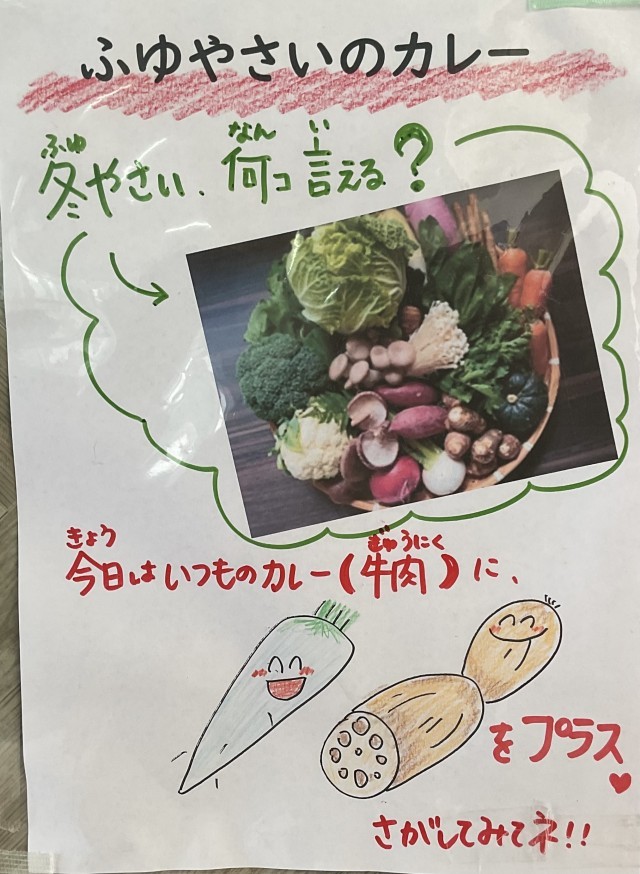 ふゆやさいのカレー
ふゆ なん い
冬やさい、何コ言える?
きょう ぎゅうにく
今日はいつものカレー(牛肉)に、
をプラス
さがしてみてネ!!